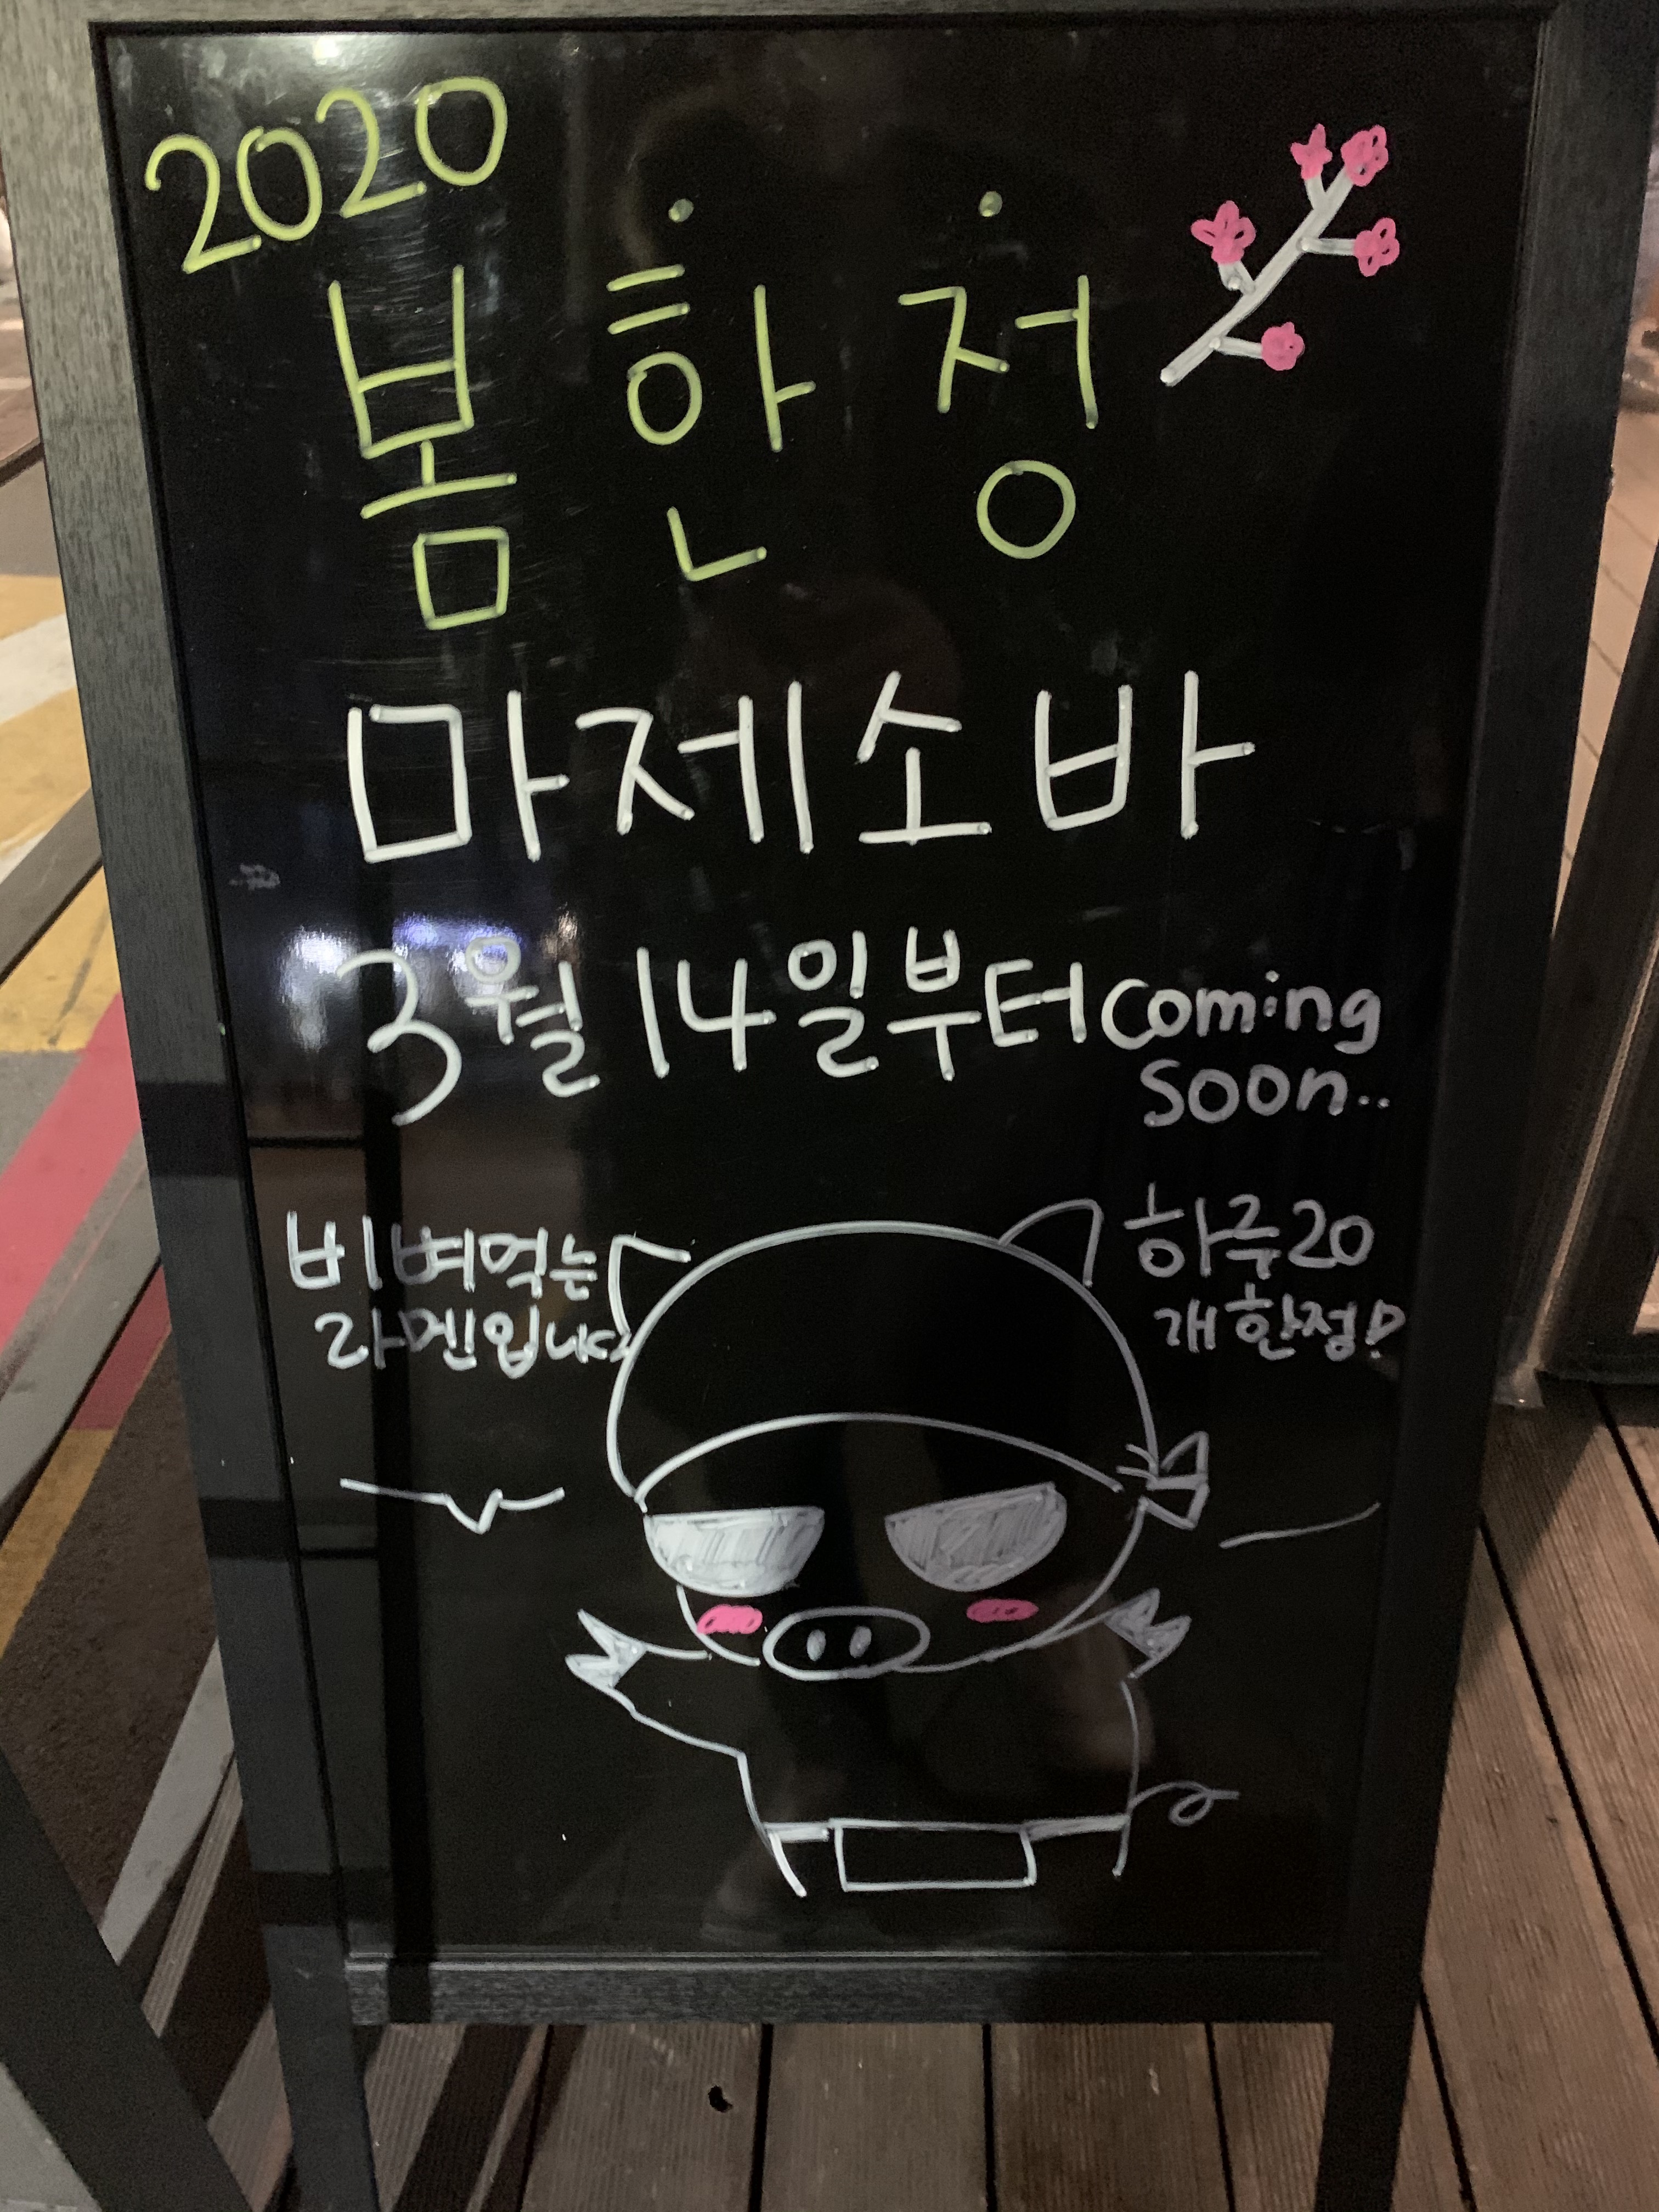 2020
봄 한 정
마제소바
3월 14일부터 coming
soon..
비벼먹는
라멘입니다
하루 20
개 한정!